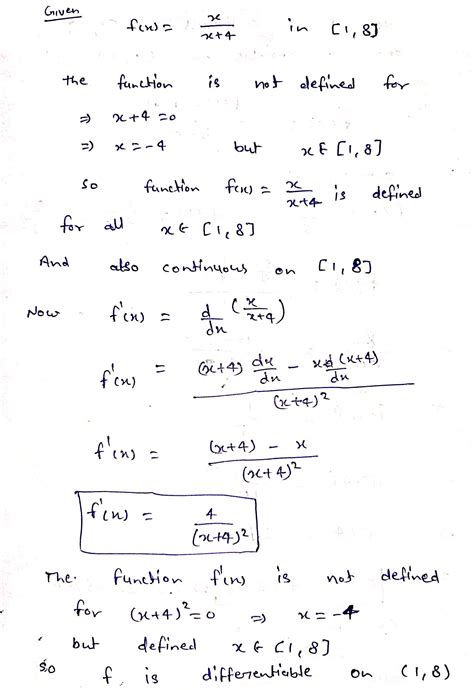 Given
f(x) = x/(x+4) in [1, 8]
the function is not defined for
⇒ x+4 = 0
⇒ x = -4 but x ∈ [1, 8]
so function f(x) = x/(x+4) is defined
for all x ∈ [1, 8]
And also continuous on [1, 8]
Now f'(x) = d/dx (x/(x+4))
f'(x) = ((x+4) dx/dx - x d(x+4)/dx)/(x+4)²
f'(x) = ((x+4) - x)/(x+4)²
f'(x) = 4/(x+4)²
The function f'(x) is not defined
for (x+4)² = 0 ⇒ x = -4
but defined x ∈ [1, 8]
so f is differentiable on (1, 8)